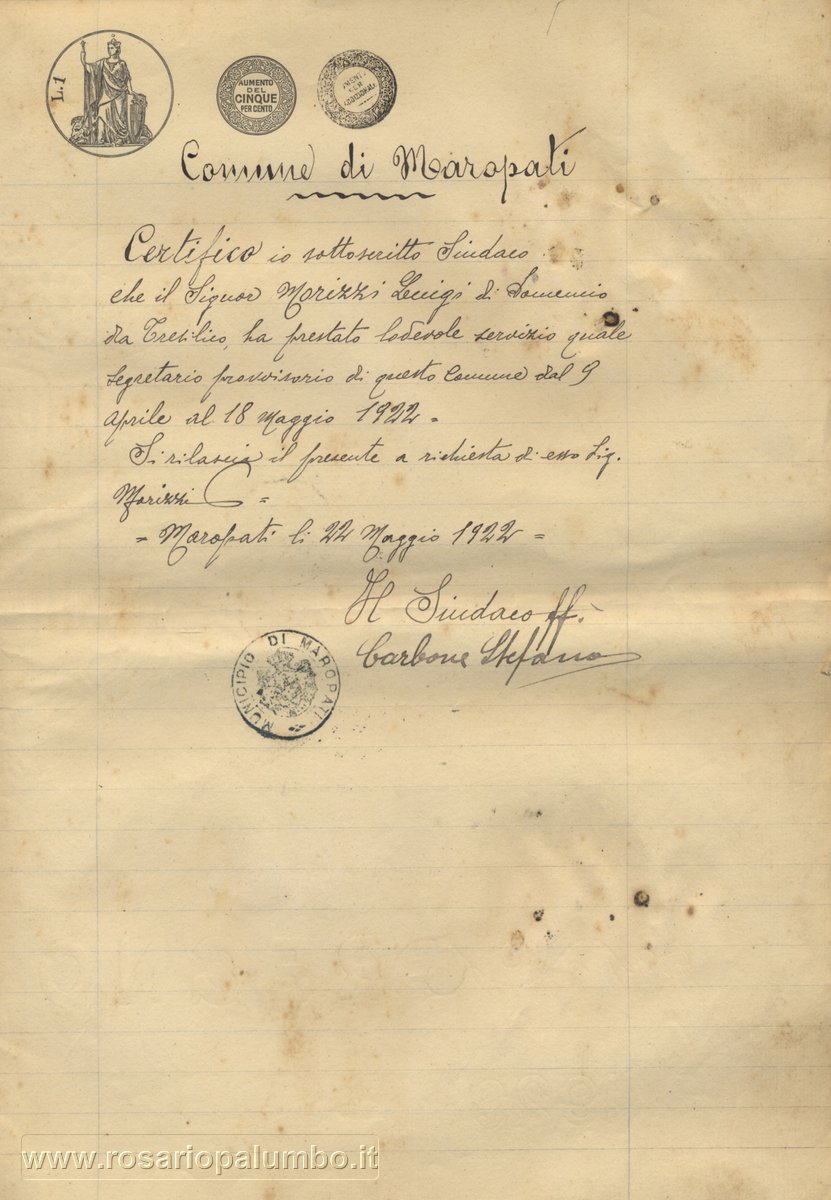 L.1
AUMENTO
DEL
CINQUE
PER CENTO
Comune di Maropati
Certifico io sottoscritto Sindaco
che il Signor Morizzi Luigi di Domenico
da Tresilico, ha prestato lodevole servizio quale
segretario provvisorio di questo Comune dal 9
Aprile al 18 Maggio 1922 =
Si rilascia il presente a richiesta di esso Sig.
Morizzi =
= Maropati li 22 Maggio 1922 =
Il Sindaco ff.
Carbone Stefano
MUNICIPIO DI MAROPATI
www.rosariopalumbo.it